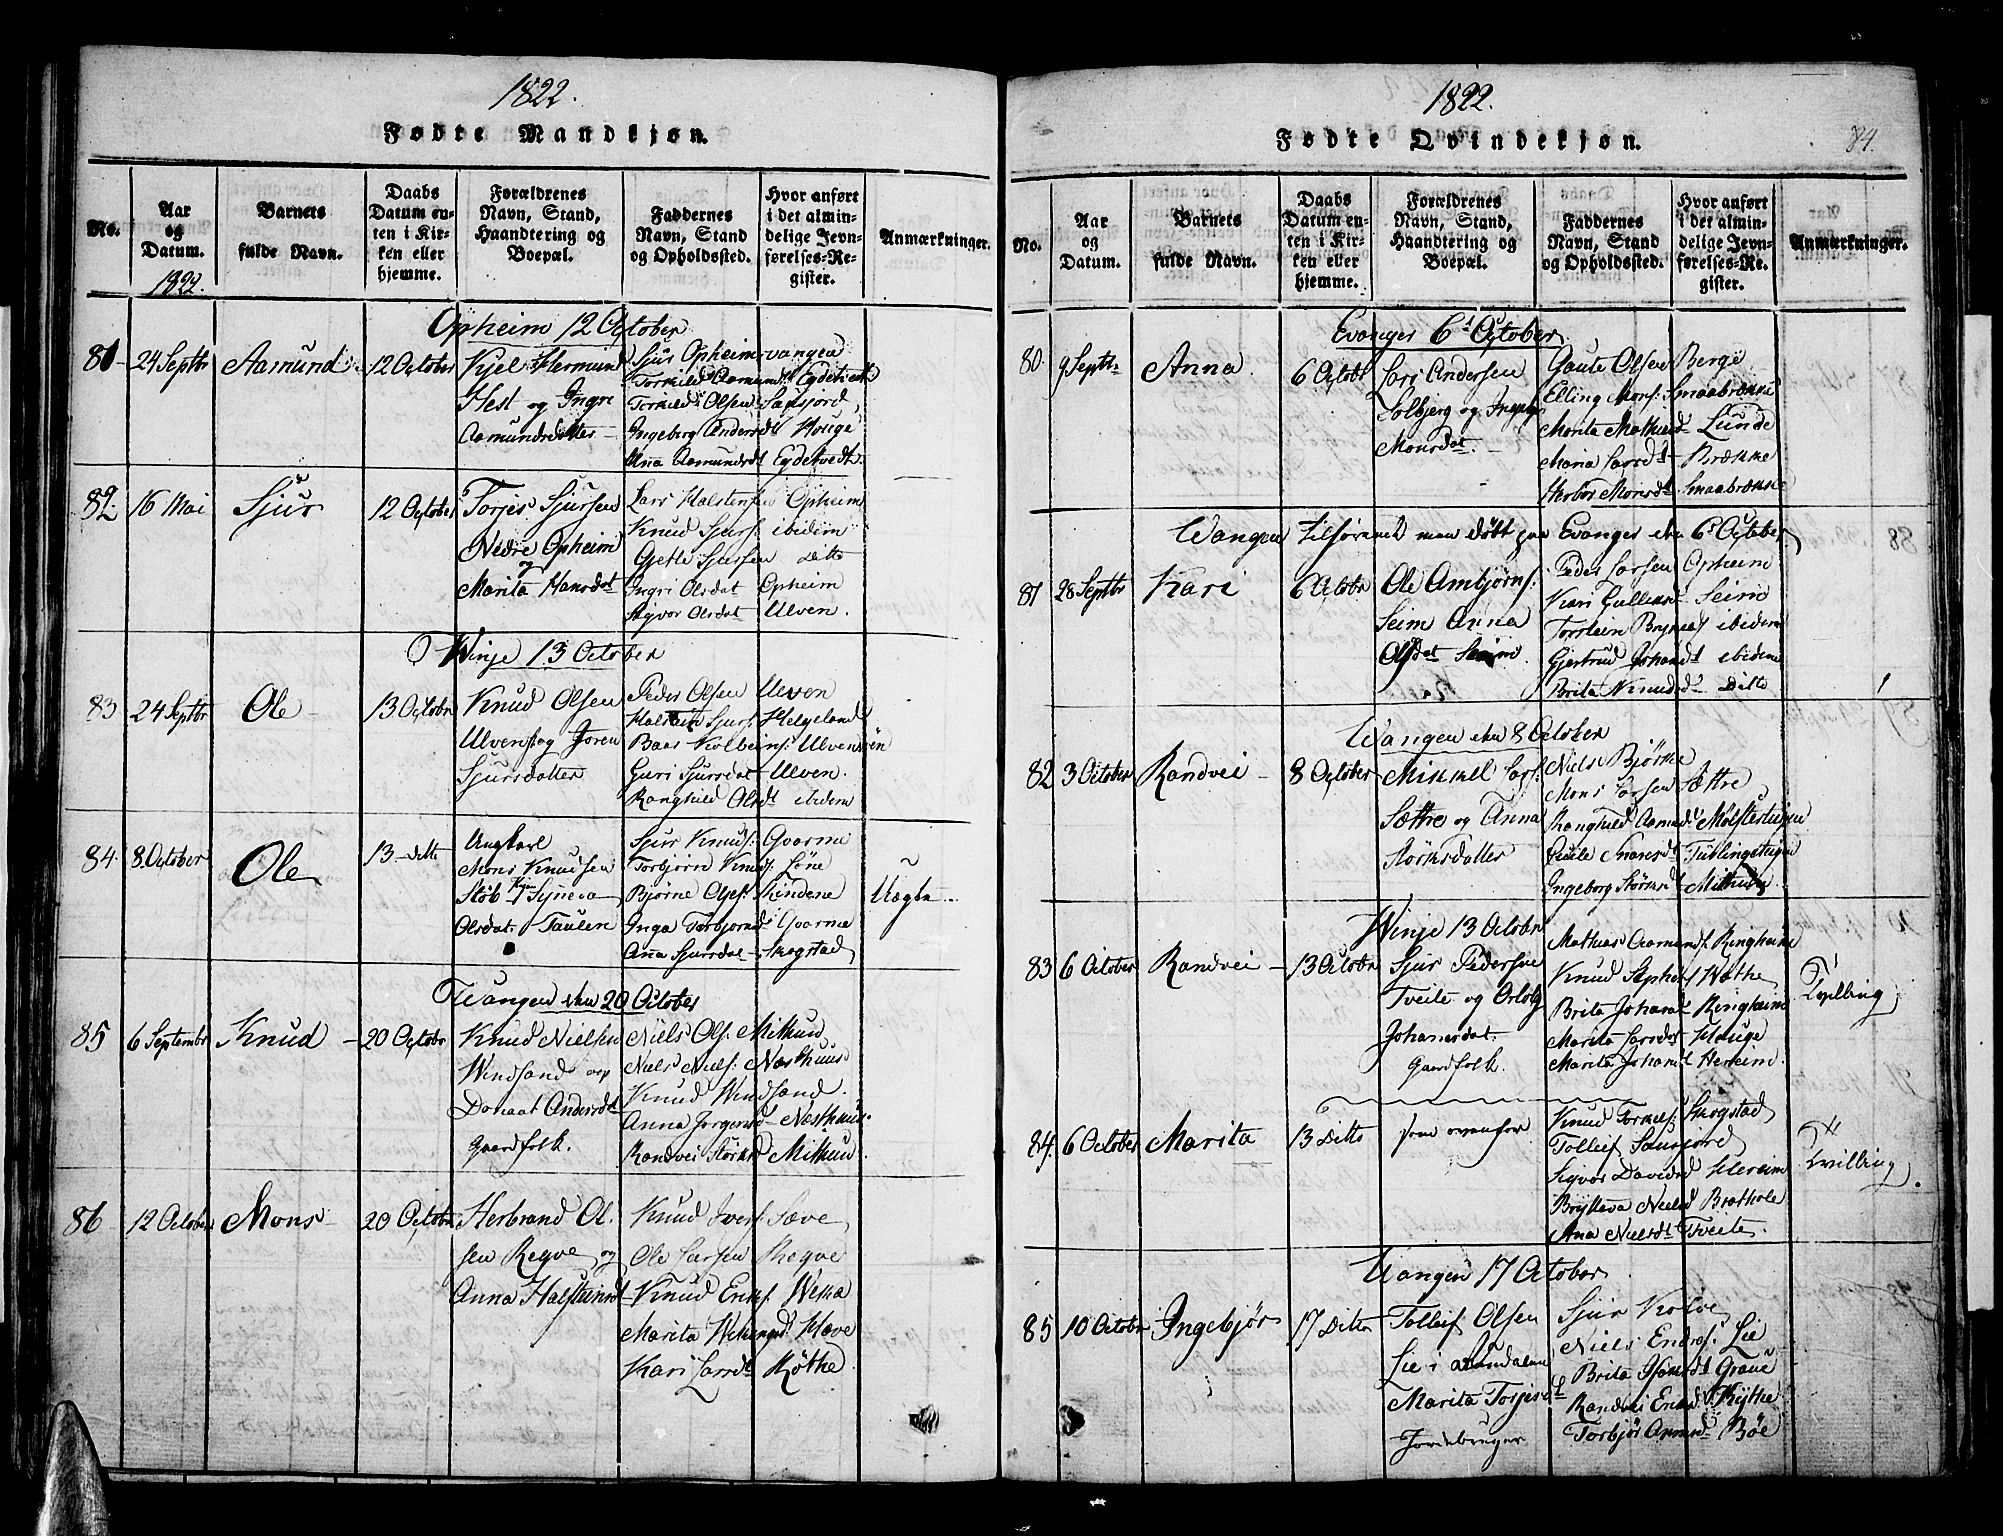 1822.
Fødte Mandkjøn.
No.
Aar
og
Datum.
1822.
Barnets
fulde Navn.
Daabs
Datum en-
ten i Kir-
ken eller
hjemme.
Forældrenes
Navn, Stand,
Haandtering og
Boepæl.
Faddernes
Navn, Stand
og Opholdssted.
Hvor anført
i det almin-
delige Jevn-
førelses-Re-
gister.
Anmærkninger.
Opheim 12 October
81
24 Septbr
Aamund
12 October
Kjel Hermund
Hest og Ingri
Aamundsdatter
Sjur Opheimsvangen
Torkild Aamunds Egdetvedt
Torkild Olsen Sausjord
Ingeborg Andersdt Houge
Anna Aamundsdt Egdetvedt
82.
16 Mai
Sjur
12 October
Torjes Sjursen
Nedre Opheim
og
Marita Hansdat
Lars Halstens Opheim
Knud Sjurs ibidem
Gjetle Sjursen Ditto
Ingri Olsdat Opheim
Sigvor Olsdat Ulven.
Winje 13 October
83
24 Septbr
Ole
13 Octobr
Knud Olsen
Ulven og Joren
Sjursdatter
Peder Olsen Ulven
Halstein Sjurs Helgeland
Baar Kolbeins: Ulven
Guri Sjursdat Ulven.
Ranghild Olsdt ibidem
84.
8 October
Ole
13 Ditto
Ungkarl
Mons Knudsen
Støb Syneva
Olsdat Taulen
Sjur Knuds: Qvarme
Torbjørn Knuds: Løne
Bjørne Olss: Kindene
Inga Torbjørnsd: Qvarme
Ana Sjursdat Skogstad
Uægte
Wangen den 20 October
85
6 Septembr
Knud
20 Octobr
Knud Nielsen
Windsand og
Donaat Andersdt
Gaardfolk.
Niels Ols: Mitkun
Niels Niels: Næsthuus
Knud Windsand
Anna Jørgensd Næsthuus
Randvei Størksd Mitkun
86
12 October
Mons
20 October
Herbrand Ol-
sen Reqve og
Anna Halsteinsdt
Knud Ivers Sæve
Ole Larsen Reqve
Knud Eriks
Marita Hæve
Kari Larsdt Røthe
1822.
84.
Fødte Qvindekjøn.
No.
Aar
og
Datum.
Barnets
fulde Navn.
Daabs
Datum en-
ten i Kir-
ken eller
hjemme.
Forældrenes
Navn, Stand,
Haandtering og
Boepæl.
Faddernes
Navn, Stand
og Opholdssted.
Hvor anført
i det almin-
delige Jevn-
førelses-Re-
gister.
Anmærkninger.
Evanger 6 October
80
9 Septbr
Anna
6 Octobr
Lars Andersen
Solbjerg og Ingeb
Monsdat.
Gaute Olsen Berge
Elling Mons: Smaabrække
Marita Mathiesd Lunde
Maria Larsdt Brække
Herbor Monsdt Smaabrække
Wangen tilføran men døbt paa Evanger den 6 October
81
28 Septbr
Kari
6 Octobr
Ole Ambjørns:
Seim Anna
Olsdat Seim
Peder Larsen Opheim
Kari Gulleiksd Seim
Torstein Brynels ibidem
Gjertrud Johansdt ibidem
Brita Knudsd Ditto
Wangen den 8 October
82
3 October
Randvei
8 October
Mikkel Lars:
Sættre og Anna
Størksdatter
Niels Bjørke
Mons Larsen Sættre
Ranghild Aamunds Mølsterteigen
Gietle Knutsdt
Ingeborg Størksdt Mitkun
Winje 13 Octobr
83
6 October
Randvei
13 Octobr
Sjur Pedersen
Tveite og
Johansdat.
Gaardfolk.
Mathias Aamunds Ringheim
Knud Steph Wæthe
Brita Johansd Ringheim
Marita Larsdt Houge
Marita Johansdt Herheim.
Tvilling
84.
6 October
Marita
13 Ditto
som ovenfor
Knud Torkels: Skogstad
Tolleif Sausjord
Sigvor Davidsd Herheim
Bryteva Nielsd Brathole
Ana Nielsdt Tveite.
Tvilling
Wangen 17 October
85
10 Octobr
Ingebjør
17 Ditto
Tolleif Olsen
Lie i
Marita Torjesdt
Jordebruger
Sjur Kolve
Niels Endres: Lie
Brita Graue
Randvei Rythe
Torbjør Bøe